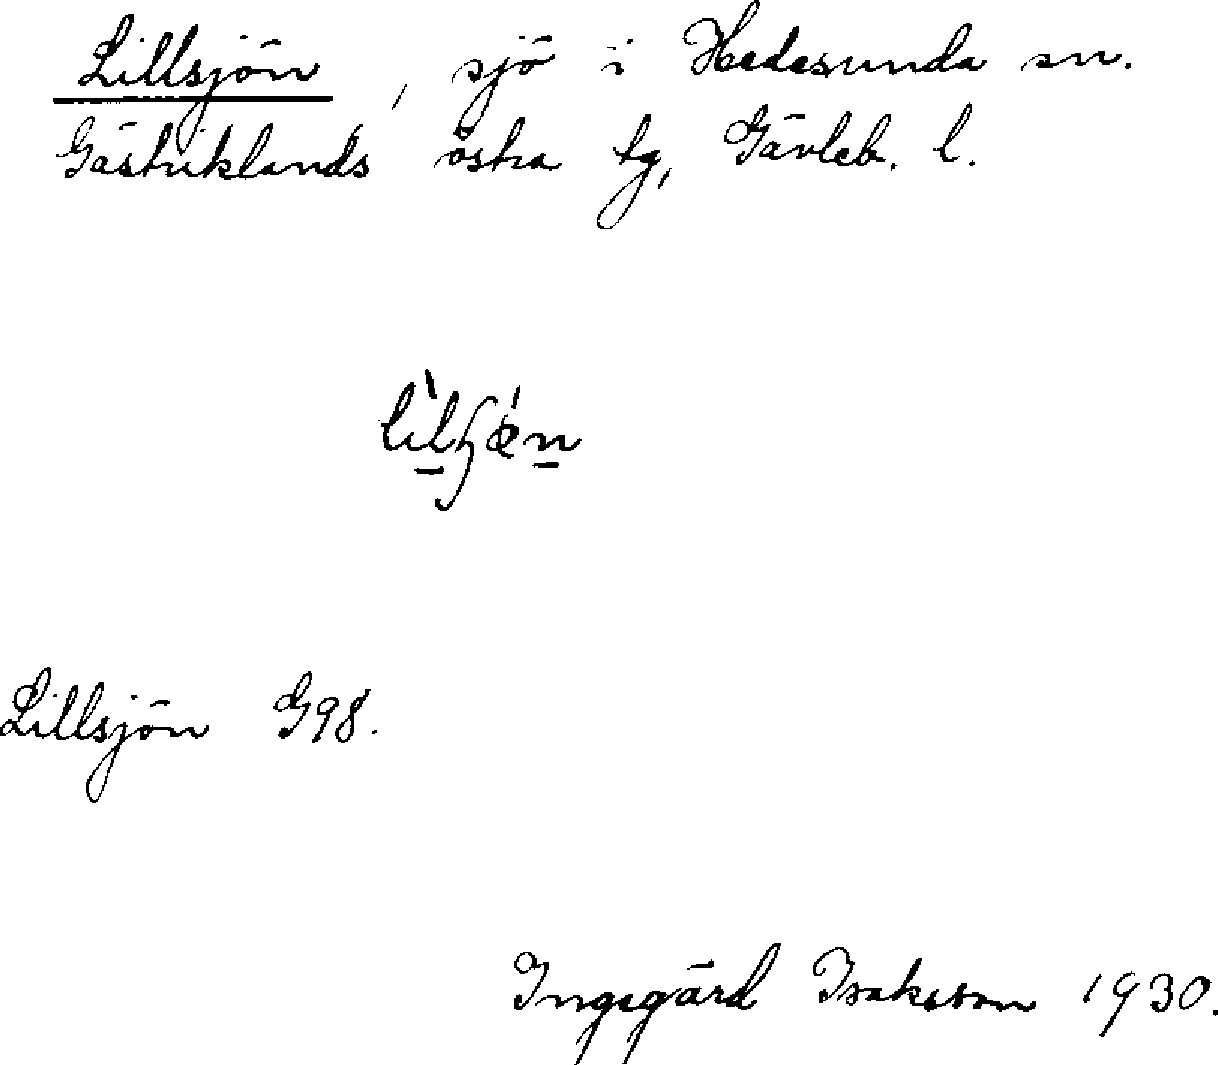 Lillsjön, sjö i Hedesunda sn.
Gästriklands östra tg, Gävleb. l.
Lillsjön G98.
Ingegärd Isaksson 1930.